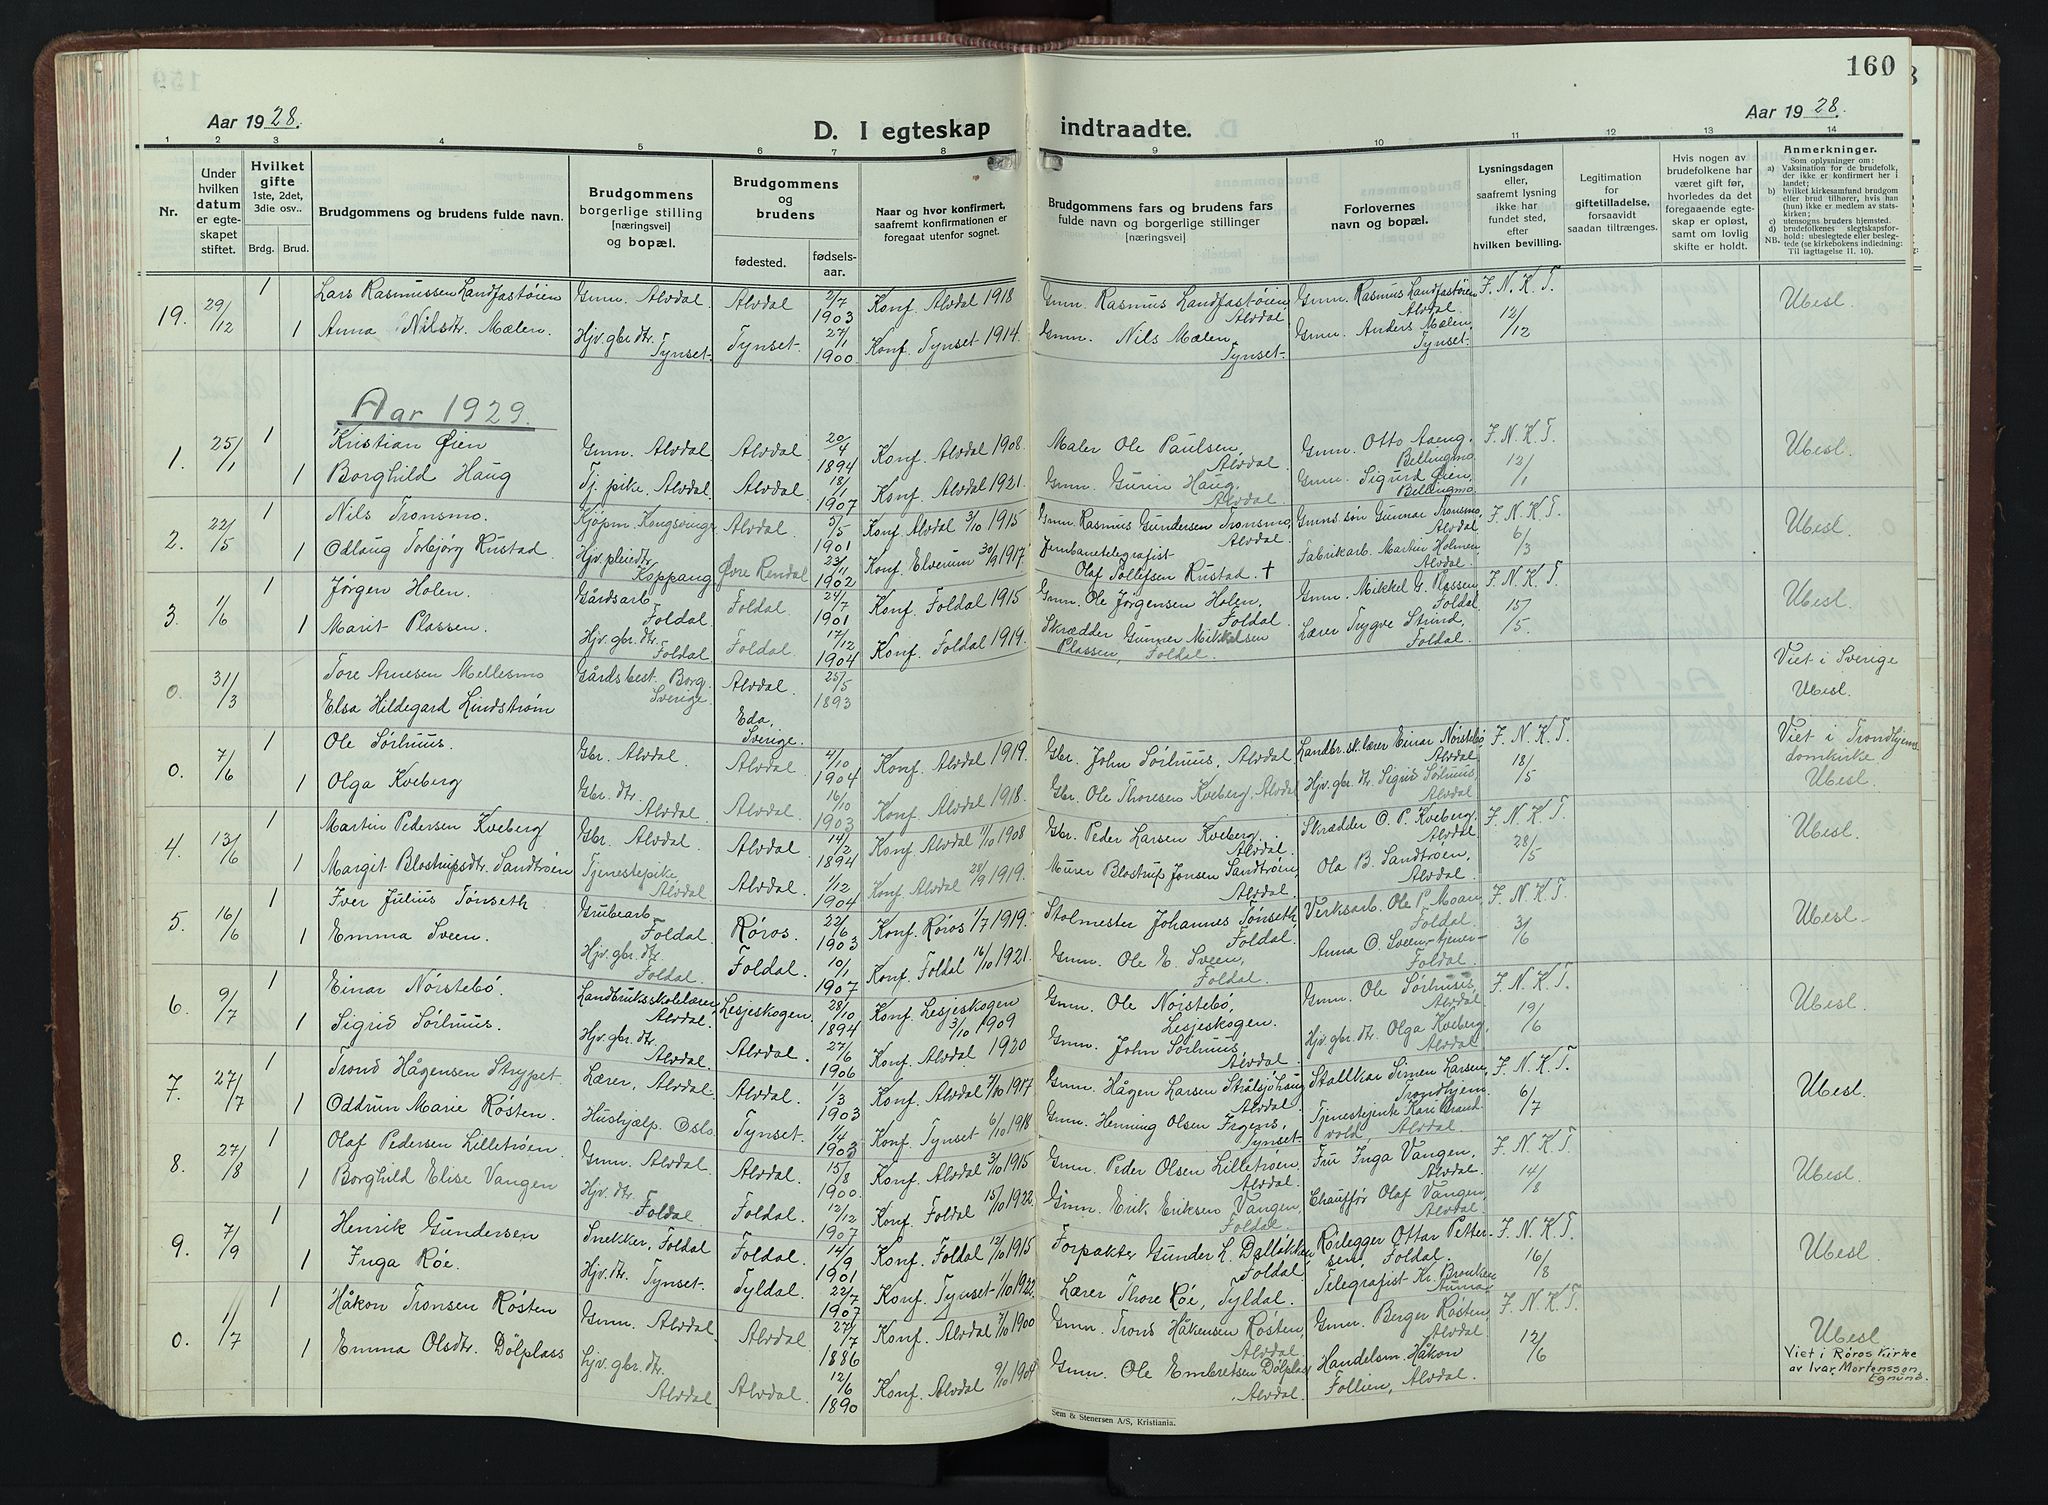 160
Aar 1928.
D. I egteskap indtraadte.
Aar 1928.
1 2 3 4 5 6 7 8 9 10 11 12 13 14
Nr.
Under hvilken datum er egteskapet stiftet.
Hvilket gifte 1ste, 2det, 3die osv..
Brdg. Brud.
Brudgommens og brudens fulde navn.
Brudgommens borgerlige stilling [næringsvei] og bopæl.
Brudgommens og brudens
fødested. fødselsaar.
Naar og hvor konfirmert, saafremt konfirmationen er foregaat utenfor sognet.
Brudgommens fars og brudens fars fulde navn og borgerlige stillinger [næringsvei]
Forlovernes navn og bopæl.
Lysningsdagen eller, saafremt lysning ikke har fundet sted, efter hvilken bevilling.
Legitimation for giftetilladelse, forsaavidt saadan tiltrænges.
Hvis nogen av brudefolkene har været gift før, hvorledes da det foregaaende egteskap er opløst, samt om lovlig skifte er holdt.
Anmerkninger.
Som oplysning om:
a) Vaksination for de brudefolk, der ikke er konfirmert her i landet;
b) hvilket kirkesamfund brudgom eller brud tilhører, hvis han (hun) ikke er medlem av statskirken;
c) utensogns bruders hjemsted.
d) brudefolkenes slegtskapsforhold: ubeslegtede eller beslegtede (se kirkebokens indledning: Til iagttagelse II. 10).
NB.
19. 29/12 1 Lars Rasmussen Landfastøien Gmn. Alvdal Alvdal 2/7 1903 Konf. Alvdal 1918 Gmn. Rasmus Landfastøien Alvdal Gmn. Rasmus Landfastøien Alvdal F. N. K. T. 12/12 Ubesl.
1 Anna Nilsdtr. Mælen. Hjv. gbr. dtr. Tynset Tynset 27/1 1900 Konf. Tynset 1914. Gmn. Nils Mælen, Tynset Gmn. Anders Mælen, Tynset.
Aar 1929.
1. 25/1 1 Kristian Øien Gmn. Alvdal Alvdal 20/4 1894 Konf. Alvdal 1908. Maler Ole Paulsen, Alvdal Gmn. Otto Aaeng, Bellingmo F. N. K. T. 12/1 Ubesl.
1 Borghild Haug Tj. pike, Alvdal Alvdal 18/1 1907 Konf. Alvdal 1921. Gmn. Gurin Haug, Alvdal. Gmn. Sigurd Øien, Bellingmo
2. 22/5 1 Nils Tronsmo. Kjøpm. Kongsvinger Alvdal 5/5 1901 Konf. Alvdal 3/10 1915 Gmn. Rasmus Gundersen Tronsmo, Alvdal Gmns. søn Gunnar Tronsmo, Alvdal F. N. K. T. 6/3 Ubesl.
1 Odlaug Torbjørg Rustad Hjv. pleiedtr. Koppang Øvre Rendal 23/11 1902 Konf. Elverum 30/9 1917. Jernbanetelegrafist Olaf Tollefsen Rustad. † Fabrikarb. Martin Holmen, Alvdal
3. 1/6 1 Jørgen Holen. Gårdsarb. Foldal Foldal 24/7 1901 Konf. Foldal 1915 Gmn. Ole Jørgensen Holen, Foldal Gmn. Mikkel G. Plassen, Foldal F. N. K. T. 15/5 Ubesl.
1 Marit Plassen. Hjv. gbr. dtr. Foldal Foldal. 17/12 1904 Konf. Foldal 1919. Skrædder Gunner Mikkelsen Plassen, Foldal. Lærer Trygve Strind, Foldal.
0. 31/3 Tore Arnesen Mellesmo Gårdsbest. Borg. Sverige Alvdal 25/5 1893 Viet i Sverige Ubesl.
Elsa Hildegard Lindstrøm Eda, Sverige.
0. 7/6 1 Ole Sørhuus. Gbr. Alvdal Alvdal 4/10 1904 Konf. Alvdal 1919. Gbr. John Sørhuus, Alvdal Landbr. sk. lærer Einar Nørstebø, Alvdal F. N. K. T. 18/5 Viet i Trondhjems domkirke. Ubesl.
1 Olga Kveberg Gbr. dtr. Alvdal Alvdal. 16/10 1903 Konf. Alvdal 1918. Gbr. Ole Thoresen Kveberg, Alvdal Hjv. gbr. dtr. Sigrid Sørhuus, Alvdal
4. 13/6 1 Martin Pedersen Kveberg Gbr. Alvdal. Alvdal 14/2 1894 Konf. Alvdal 11/10 1908 Gbr. Peder Larsen Kveberg, Alvdal Skrædder O. P. Kveberg, Alvdal F. N. K. T. 28/5 Ubesl.
1 Margit Blostrupsdtr. Sandtrøen Tjenestepike Alvdal Alvdal. 1/12 1904 Konf. Alvdal 28/9 1919. Murer Blostrup Jonsen Sandtrøen, Alvdal Ola B. Sandtrøen, Alvdal.
5. 16/6 1 Iver Julius Tønseth Grubearb. Foldal. Røros. 22/6 1903 Konf. Røros 1/7 1919. Stolmester Johannes Tønseth, Foldal Verksarb. Ole P. Moan Foldal. F. N. K. T. 31/6 Ubesl.
1 Emma Sveen. Hjv. gbr. dtr. Foldal Foldal. 10/1 1907 Konf. Foldal 16/10 1921. Gmn. Ole E. Sveen, Foldal Anna O. Sveen, tjener Foldal.
6. 9/7 1 Einar Nørstebø. Landbruksskolelærer Alvdal Lesjeskogen 28/10 1894 Konf. Lesjeskogen 3/10 1909 Gmn. Ole Nørstebø, Lesjeskogen. Gmn. Ole Sørhuus, Alvdal F. N. K. T. 19/6 Ubesl.
1 Sigrid Sørhuus. Hjv. gbr. dtr. Alvdal Alvdal. 27/6 1906 Konf. Alvdal 1920 Gmn. John Sørhuus Alvdal Hjv. gbr. dtr. Olga Kveberg, Alvdal
7. 27/7 1 Trond Hågensen Strypet. Lærer, Alvdal Alvdal 1/3 1903 Konf. Alvdal 7/10 1917 Gmn. Hågen Larsen Strålsjøhaug Alvdal. Stallkar Simen Larsen, Trondhjem F. N. K. T. 6/7 Ubesl.
1 Oddrun Marie Røsten. Hushjælp Oslo Tynset. 1/4 1903 Konf. Tynset 6/10 1918 Gmn. Henning Olsen Frgens, Tynset Tjenestejente Kari Brandvold, Alvdal
8. 27/8 1 Olaf Pedersen Lilletrøen. Gmn. Alvdal. Alvdal 15/8 1900. Konf. Alvdal 3/10 1915 Gmn. Peder Olsen Lilletrøen. Alvdal. Fru Inga Vangen, Alvdal F. N. K. T. 14/8 Ubesl.
1 Borghild Elise Vangen Hjv. dtr. Foldal Foldal. 12/12 1907 Konf. Foldal 15/10 1922. Gmn. Erik Eriksen Vangen, Foldal Chauffør Olaf Vangen, Alvdal.
9. 7/9 1 Henrik Gundersen Snekker, Foldal Foldal. 14/9 1901 Konf. Foldal 12/10 1915 Forpakter Gunder L. Dalløkken, Foldal Rørlegger Ottar Pettersen, Foldal. F. N. K. T. 16/8 Ubesl.
1 Inga Røe. Hjv. dtr. Tynset. Tyldal. 22/7 1907 Konf. Tynset 1/10 1922. Lærer Thore Røe, Tyldal. Telegrafist Kr. Brouken Auma
0. 1/7 1 Håkon Tronsen Røsten Gmn. Alvdal Alvdal 27/7 1886 Konf. Alvdal 7/10 1900 Gmn. Trond Håkensen Røsten, Alvdal Gmn. Berger Røsten, Alvdal F. N. K. T. 12/6 Ubesl.
1 Emma Olsdtr. Dölplass Hjv. gbr. dtr. Alvdal Alvdal. 12/6 1890 Konf. Alvdal 9/10 1904 Gmn. Ole Embretsen Dölplass Alvdal Handelsm. Håkon Follien, Alvdal. Viet i Røros Kirke av Ivar Mortensson Egnund.
Sem & Stenersen A/S, Kristiania.